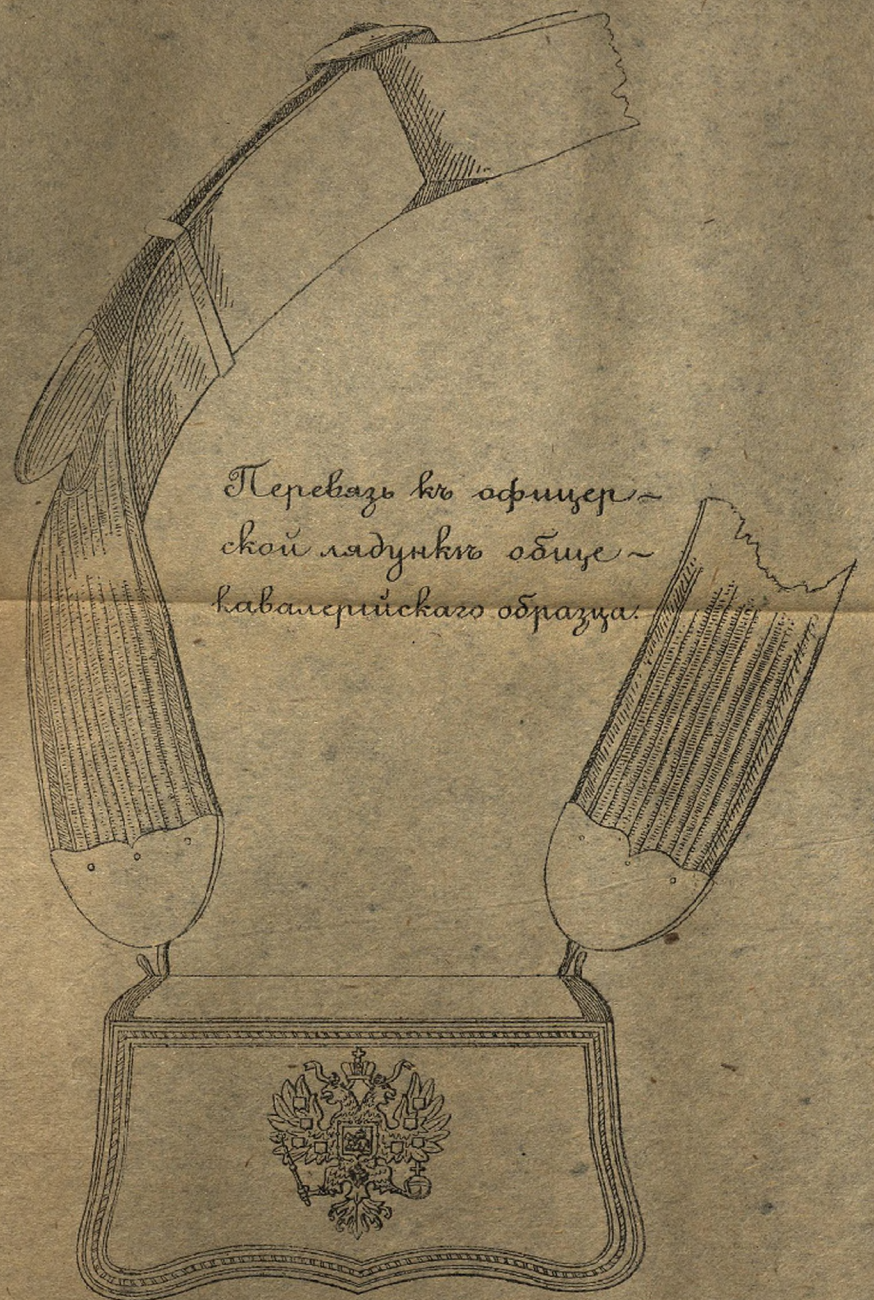 Перевязь къ офицер-
ской лядункѣ обще-
кавалерійскаго образца.